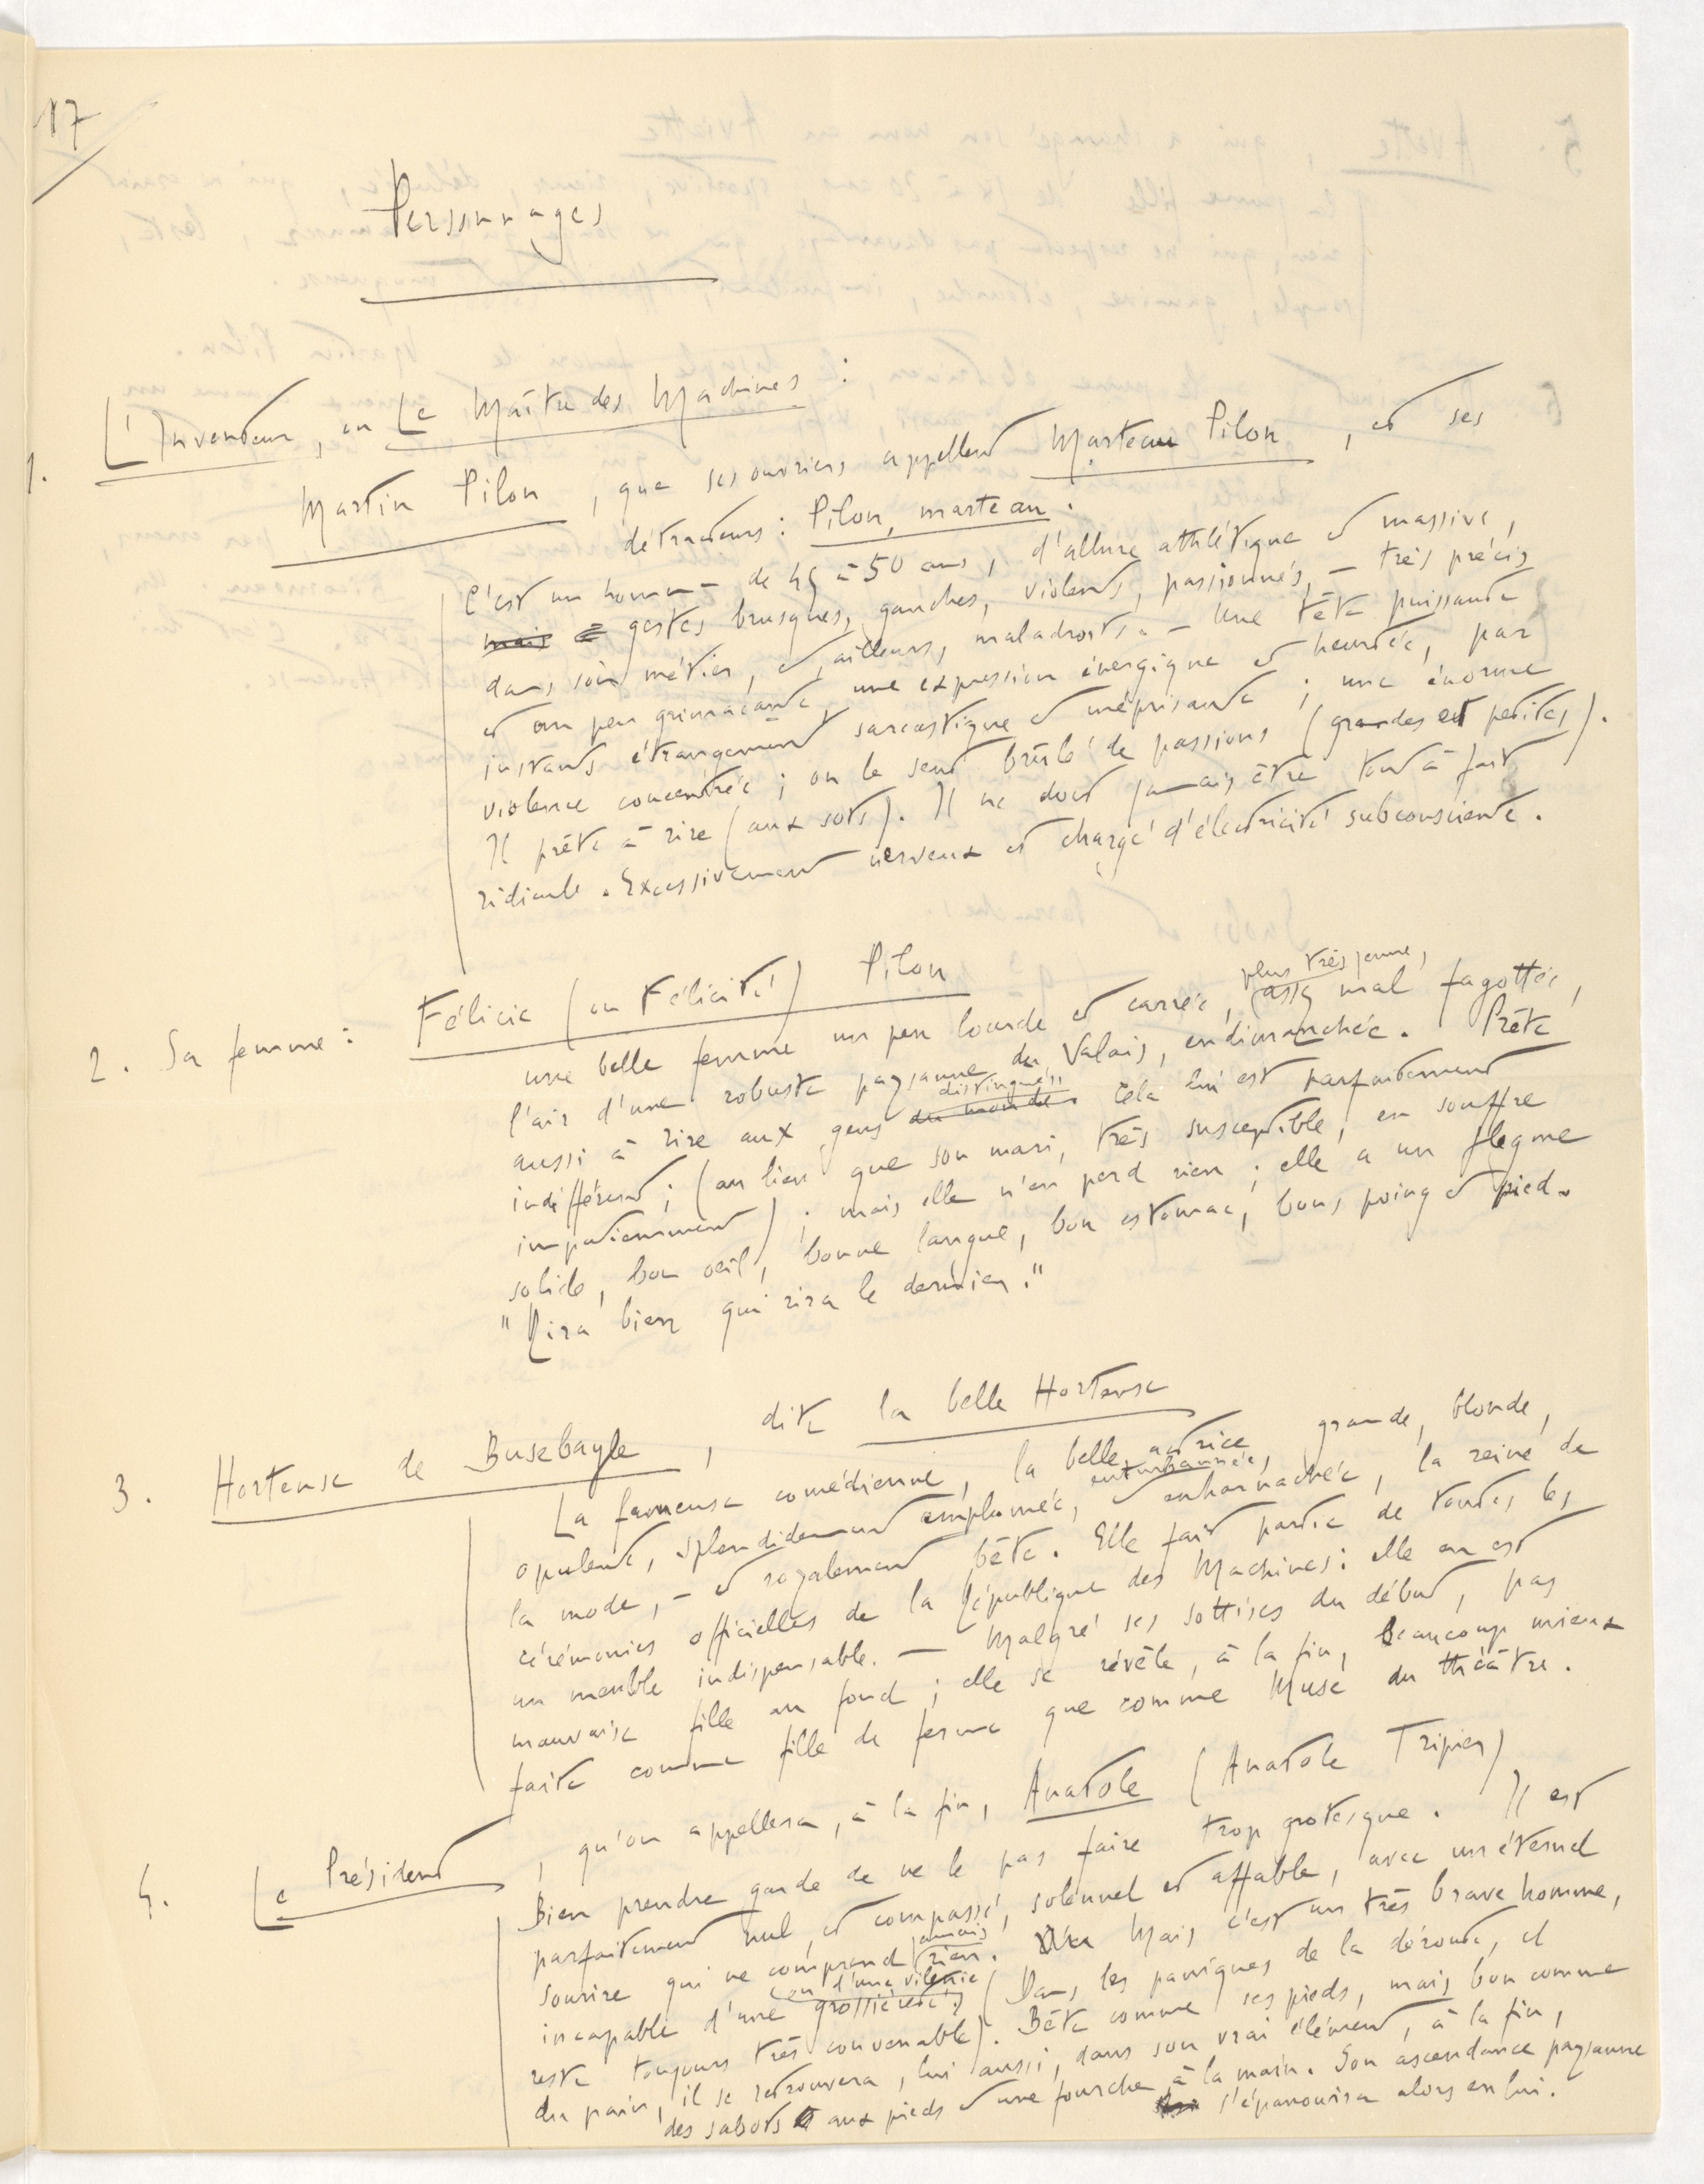 17
Personnages
1. L'Inventeur, ou Le Maître des Machines :
Martin Pilon, que ses ouvriers appellent Marteau Pilon, et ses
détracteurs : Pilon, marteau.
C'est un homme de 45 à 50 ans, d'allure athlétique et massive,
mais gestes brusques, gauches, violents, passionnés, – très précis
dans son métier, et, ailleurs, maladroits. – Une tête puissante
et un peu grimaçante, une expression énergique et heurtée, par
instants étrangement sarcastique et méprisante ; une énorme
violence concentrée ; on le sent brûlé de passions (grandes et petites).
Il prête à rire (aux sots). Il ne doit jamais être tout à fait
ridicule. Excessivement nerveux et chargé d'électricité subconsciente.
2. Sa femme : Félicie (ou Félicité) Pilon
plus très jeune,
une belle femme un peu lourde et carrée, assez mal fagottée,
l'air d'une robuste paysanne du Valais, endimanchée. Prête
distingués
aussi à rire aux gens du monde. Cela lui est parfaitement
indifférent ; (au lieu que son mari, très susceptible, en souffre
impatiemment) ; mais elle n'en perd rien ; elle a un flegme
solide, bon oeil, bonne langue, bon estomac, bons poing et pied.
"Rira bien qui rira le dernier."
3. Hortense de Busebayle, dite la belle Hortense
La fameuse comédienne, la belle actrice, grande, blonde,
enturbannée,
opulente, splendidement emplumée, et enharnachée, la reine de
la mode, – et royalement bête. Elle fait partie de toutes les
cérémonies officielles de la République des Machines : elle en est
un meuble indispensable. – Malgré ses sottises du début, pas
mauvaise fille au fond ; elle se révèle, à la fin, beaucoup mieux
faite comme fille de ferme que comme Muse du théâtre.
4. Le Président, qu'on appellera, à la fin, Anatole (Anatole Tripier)
Bien prendre garde de ne le pas faire trop grotesque. Il est
parfaitement nul et compassé, solennel et affable, avec un éternel
jamais
sourire qui ne comprend rien. Mais c'est un très brave homme,
ou d'une vilenie
incapable d'une grossièreté. (Dans les paniques de la déroute, il
reste toujours très convenable). Bête comme ses pieds, mais bon comme
du pain, il se retrouvera, lui aussi, dans son vrai élément, à la fin,
des sabots aux pieds et une fourche à la main. Son ascendance paysanne
s'épanouira alors en lui.